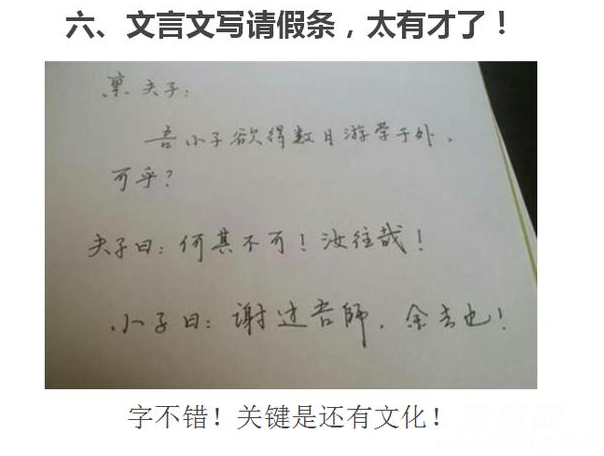 六、文言文写请假条，太有才了！
禀夫子：
吾小子欲得数日游学于外，
可乎？
夫子曰：何其不可！汝往哉！
小子曰：谢过吾師，余去也！
字不错！关键是还有文化！